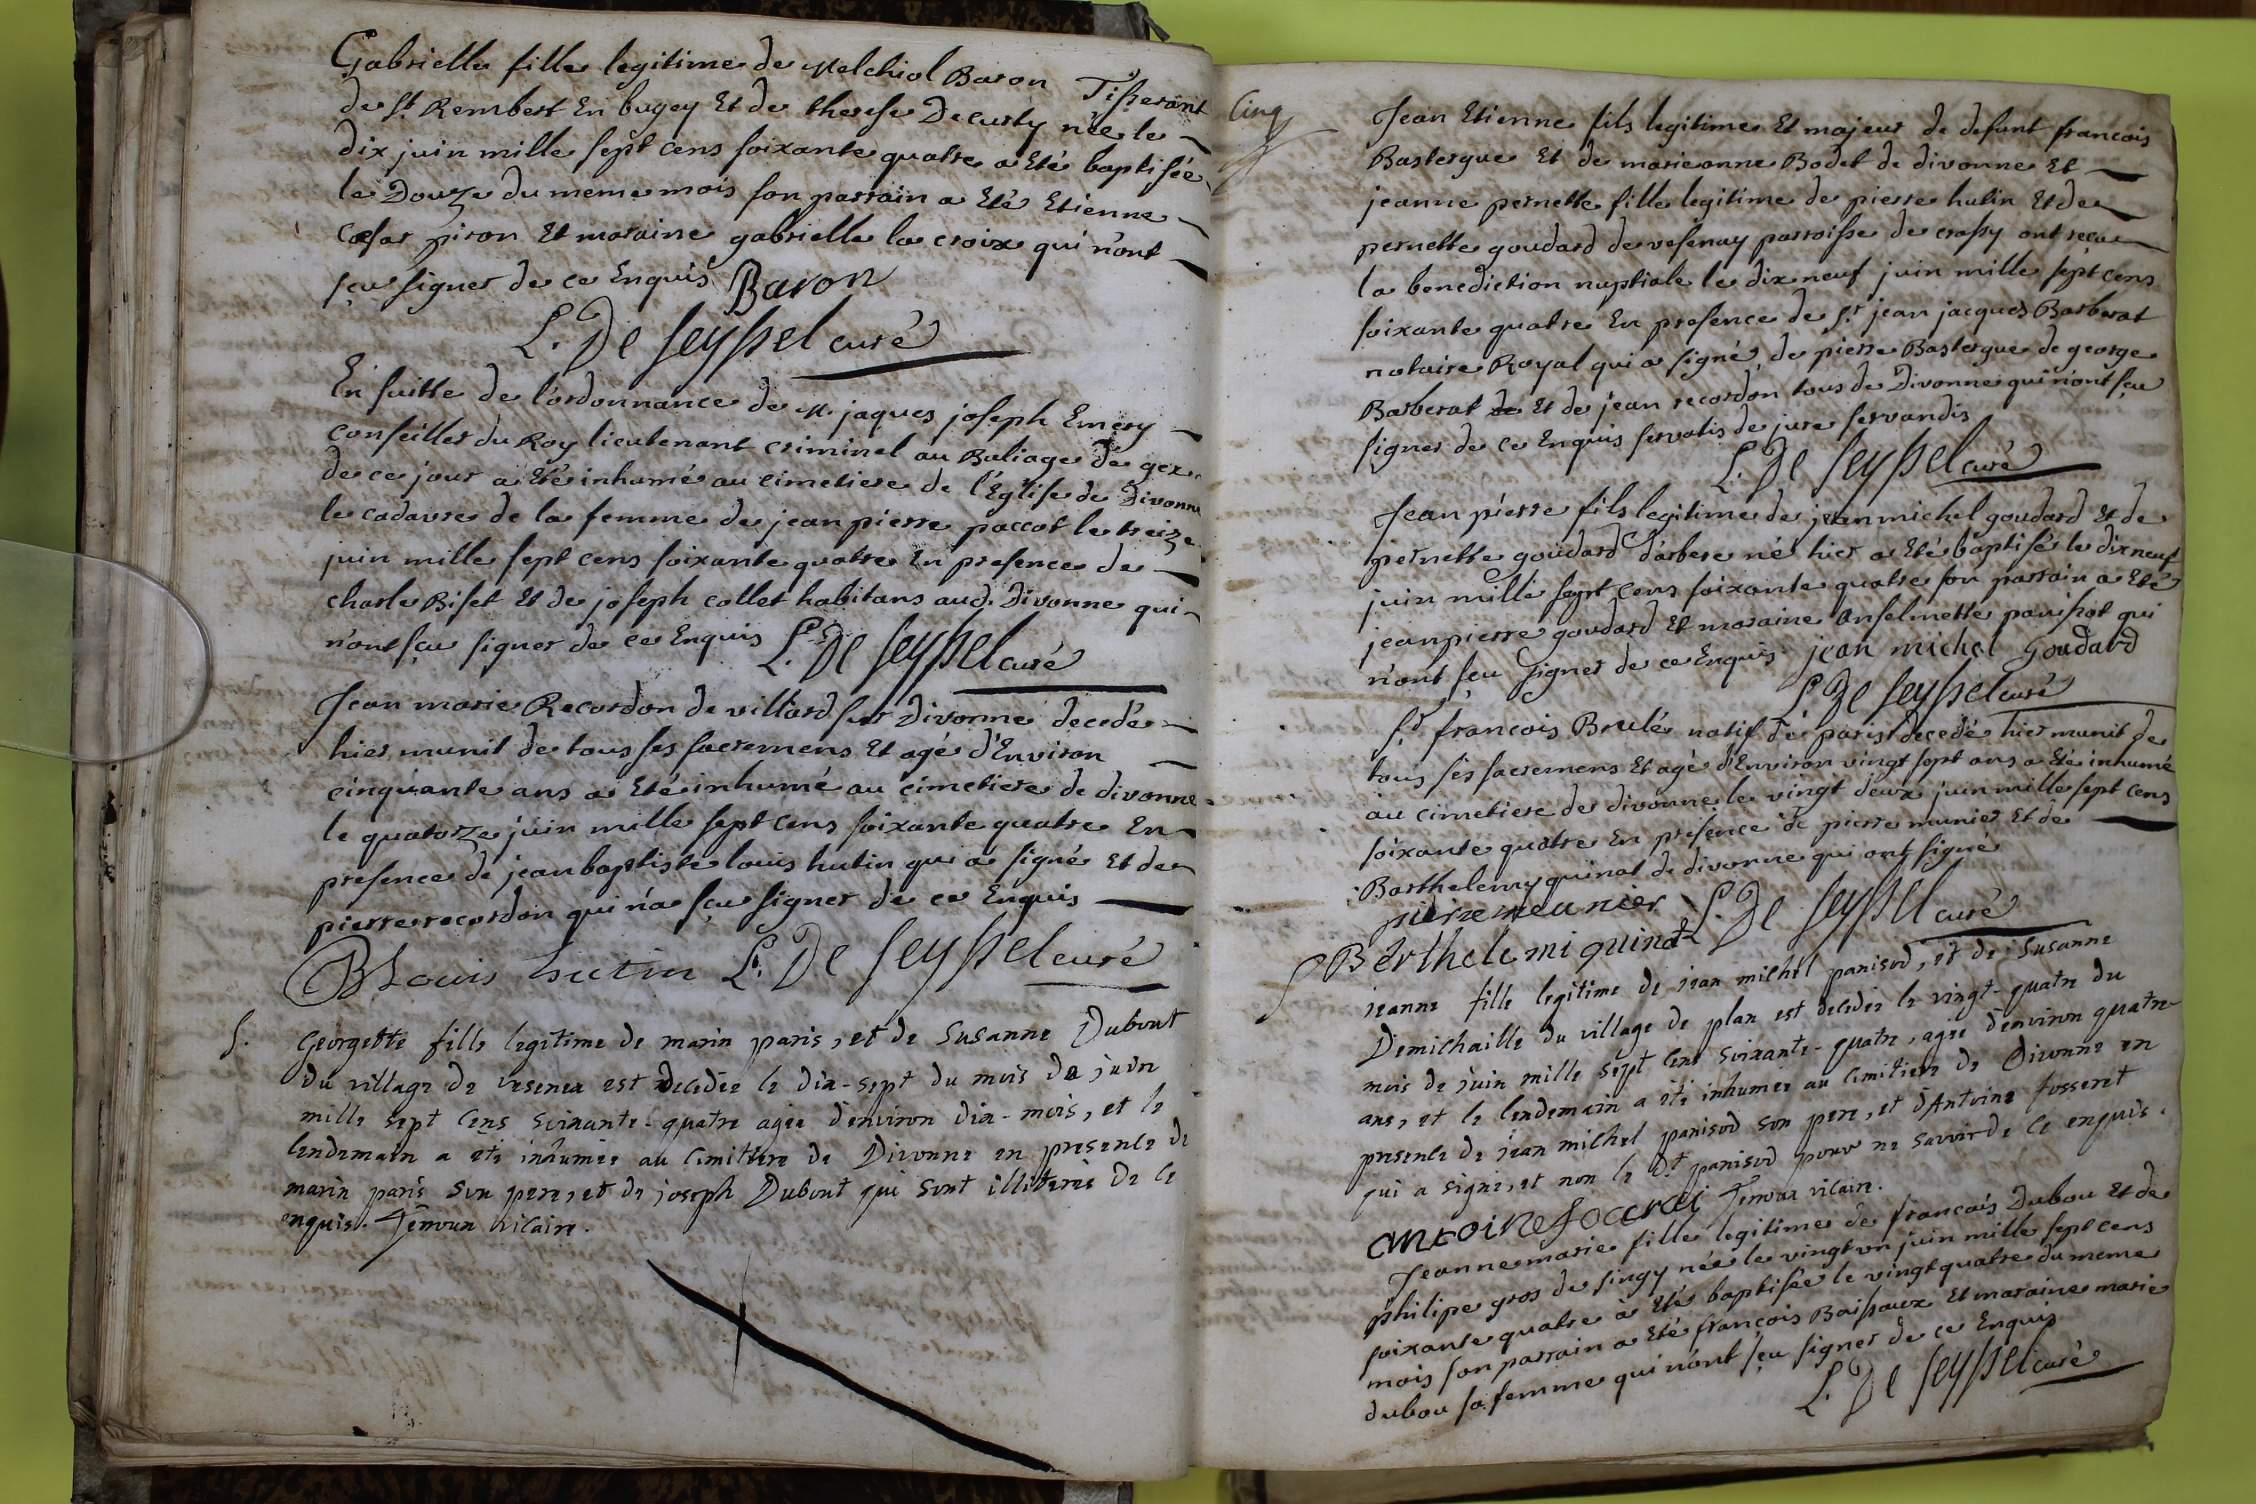 Gabrielle fille legitime de Melchiol Baron Tisserant
de St. Rembert En bugey Et de therese Decurty née le
dix juin mille sept cens soixante quatre a Eté baptisée
le Douze du meme mois son parrain a Eté Etienne
cæsar piron Et maraine gabrielle la croix qui n'ont
sçu signer de ce Enquis Baron
L. De Seyssel curé
En suitte de l'ordonnance de M. jaques joseph Emery
conseiller du Roy lieutenant criminel au Baliage de gex
de ce jour a Eté inhumé au cimetiere de l'Église de Divonne
le cadavre de la femme de jean pierre paccot le treize
juin mille sept cens soixante quatre En presence de
charle Biset Et de joseph collet habitans aud. Divonne qui
n'ont sçu signer de ce Enquis L. De Seyssel curé
Jean marie Recordon de villard sur Divonne decedé
hier munit de tous ses sacremens Et agé d'Environ
cinquante ans a Eté inhumé au cimetiere de divonne
le quatorze juin mille sept cens soixante quatre En
presence de jean baptiste louis hutin qui a signé Et de
pierre recordon qui n'a sçu signer de ce Enquis
B Louis hutin L. De Seyssel curé
S. Georgette fille legitime de marin paris, et de Susanne Dubout
du village de vesenex est decedée le dix-sept du mois de juin
mille sept cens soixante-quatre agée d'environ dix-mois, et le
lendemain a été inhumée au cimitiere de Divonne en presence de
marin paris son pere, et de joseph Dubout qui sont illiterés de ce
enquis. vicaire.
Cinq
Jean Etienne fils legitime Et majeur de defunt francois
Bastergue Et de marieanne Bodet de divonne Et
jeanne pernette fille legitime de pierre hutin Et de
pernette goudard de vesenay parroisse de crassy ont reçu
la benediction nuptiale le dix neuf juin mille sept cens
soixante quatre En presence de Sr. jean jacques Barberat
notaire Royal qui a signé, de pierre Bastergue de george
Barberat de Et de jean recordon tous de Divonne qui n'ont sçu
signer de ce Enquis servatis de jure servandis
L. De Seyssel curé
Jean pierre fils legitime de jean michel goudard Et de
pernette goudard d'arbere né hier a Eté baptisé le dix neuf
juin mille sept cens soixante quatre son parrain a Eté
jean pierre goudard Et maraine Anselmette panissot qui
n'ont sçu signer de ce Enquis jean michel Goudard
L. De Seyssel curé
Sr. francois Brulé natif de paris decedé hier munit de
tous ses sacremens Et agé d'Environ vingt sept ans a Eté inhumé
au cimetiere de divonne le vingt deux juin mille sept cens
soixante quatre En presence de pierre munier Et de
Barthelemy quinat de divonne qui ont signé
pierre meunier L. De Seyssel curé
Berthelemi quinat
jeanne fille legitime de jean michel panisod, et de Susanne
Demichaille du village de plan est decedée le vingt-quatre du
mois de juin mille sept cens soixante-quatre, agée d'environ quatre
ans, et le lendemain a été inhumée au cimitiere de Divonne en
presence de jean michel panisod son pere, et d'Antoine fosseret
qui a signé, et non le dt. panisod pour ne savoir de ce enquis.
antoine vicaire.
Jeanne marie fille legitime de francois Dubou Et de
philipe gros de singy née le vingt un juin mille sept cens
soixante quatre a Eté baptisée le vingt quatre du meme
mois son parrain a Eté françois Baissaux Et maraine marie
dubou sa femme qui n'ont sçu signer de ce Enquis
L. De Seyssel curé